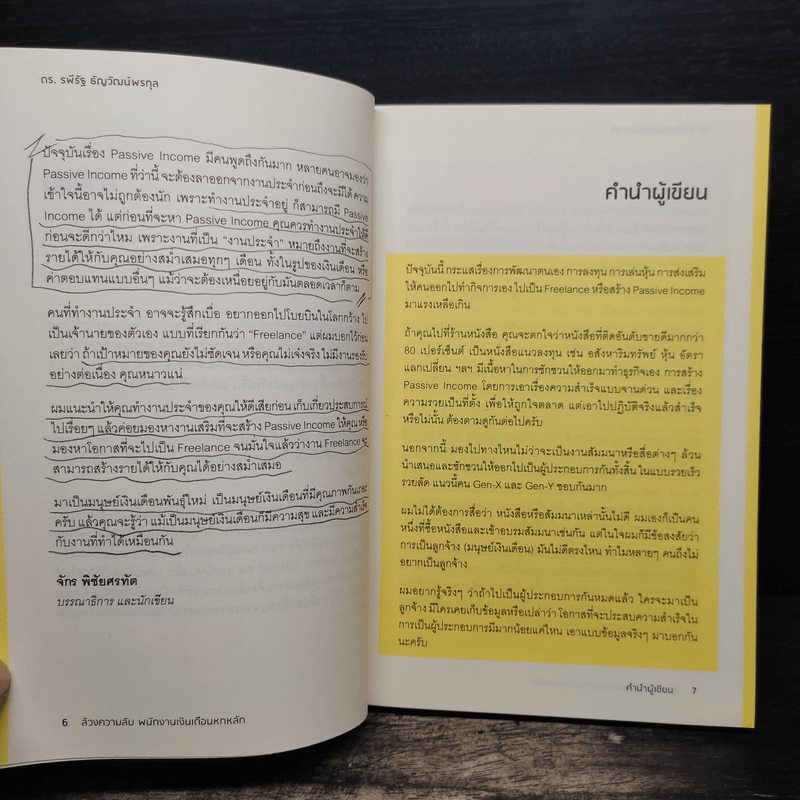 ดร. รพีรัฐ ธัญวัฒน์พรกุล
ปัจจุบันเรื่อง Passive Income มีคนพูดถึงกันมาก หลายคนอาจมองว่า
Passive Income ที่ว่านี้ จะต้องลาออกจากงานประจำก่อนถึงจะมีได้ ความ
เข้าใจนี้อาจไม่ถูกต้องนัก เพราะทำงานประจำอยู่ ก็สามารถมี Passive
Income ได้ แต่ก่อนที่จะหา Passive Income คุณควรทำงานประจำให้ดี
ก่อนจะดีกว่าไหม เพราะงานที่เป็น “งานประจำ” หมายถึงงานที่จะสร้าง
รายได้ให้กับคุณอย่างสม่ำเสมอทุกๆ เดือน ทั้งในรูปของเงินเดือน หรือ
ค่าตอบแทนแบบอื่นๆ แม้ว่าจะต้องเหนื่อยอยู่กับมันตลอดเวลาก็ตาม
คนที่ทำงานประจำ อาจจะรู้สึกเบื่อ อยากออกไปโบยบินในโลกกว้าง ไป
เป็นเจ้านายของตัวเอง แบบที่เรียกกันว่า “Freelance” แต่ผมบอกไว้ก่อน
เลยว่า ถ้าเป้าหมายของคุณยังไม่ชัดเจน หรือคุณไม่เจ๋งจริง ไม่มีงานรองรับ
อย่างต่อเนื่อง คุณหนาวแน่
ผมแนะนำให้คุณทำงานประจำของคุณให้ดีเสียก่อน เก็บเกี่ยวประสบการณ์
ไปเรื่อยๆ แล้วค่อยมองหางานเสริมที่จะสร้าง Passive Income ให้คุณ หรือ
มองหาโอกาสที่จะไปเป็น Freelance จนมั่นใจแล้วว่างาน Freelance จะ
สามารถสร้างรายได้ให้กับคุณได้อย่างสม่ำเสมอ
มาเป็นมนุษย์เงินเดือนพันธุ์ใหม่ เป็นมนุษย์เงินเดือนที่มีคุณภาพกันเถอะ
ครับ แล้วคุณจะรู้ว่า แม้เป็นมนุษย์เงินเดือนก็มีความสุข และมีความสำเร็จ
กับงานที่ทำได้เหมือนกัน
จักร พิชัยศรทัต
บรรณาธิการ และนักเขียน
6 ล้วงความลับ พนักงานเงินเดือนหกหลัก
คำนำผู้เขียน
ปัจจุบันนี้ กระแสเรื่องการพัฒนาตนเอง การลงทุน การเล่นหุ้น การส่งเสริม
ให้คนออกไปทำกิจการเอง ไปเป็น Freelance หรือสร้าง Passive Income
มาแรงเหลือเกิน
ถ้าคุณไปที่ร้านหนังสือ คุณจะตกใจว่าหนังสือที่ติดอันดับขายดีมากกว่า
80 เปอร์เซ็นต์ เป็นหนังสือแนวลงทุน เช่น อสังหาริมทรัพย์ หุ้น อัตรา
แลกเปลี่ยน ฯลฯ มีเนื้อหาในการชักชวนให้ออกมาทำธุรกิจเอง การสร้าง
Passive Income โดยการเอาเรื่องความสำเร็จแบบจานด่วน และเรื่อง
ความรวยเป็นที่ตั้ง เพื่อให้ถูกใจตลาด แต่เอาไปปฏิบัติจริงแล้วสำเร็จ
หรือไม่นั้น ต้องตามดูกันต่อไปครับ
นอกจากนี้ มองไปทางไหนไม่ว่าจะเป็นงานสัมมนาหรือสื่อต่างๆ ล้วน
นำเสนอและชักชวนให้ออกไปเป็นผู้ประกอบการกันทั้งสิ้น ในแบบรวยเร็ว
รวยลัด แนวนี้คน Gen-X และ Gen-Y ชอบกันมาก
ผมไม่ได้ต้องการสื่อว่า หนังสือหรือสัมมนาเหล่านั้นไม่ดี ผมเองก็เป็นคน
หนึ่งที่ซื้อหนังสือและเข้าอบรมสัมมนาเช่นกัน แต่ในใจผมก็มีข้อสงสัยว่า
การเป็นลูกจ้าง (มนุษย์เงินเดือน) มันไม่ดีตรงไหน ทำไมหลายๆ คนถึงไม่
อยากเป็นลูกจ้าง
ผมอยากรู้จริงๆ ว่าถ้าไปเป็นผู้ประกอบการกันหมดแล้ว ใครจะมาเป็น
ลูกจ้าง มีใครเคยเก็บข้อมูลหรือเปล่าว่า โอกาสที่จะประสบความสำเร็จใน
การเป็นผู้ประกอบการมีมากน้อยแค่ไหน เอาแบบข้อมูลจริงๆ มาบอกกัน
นะครับ
คำนำผู้เขียน 7